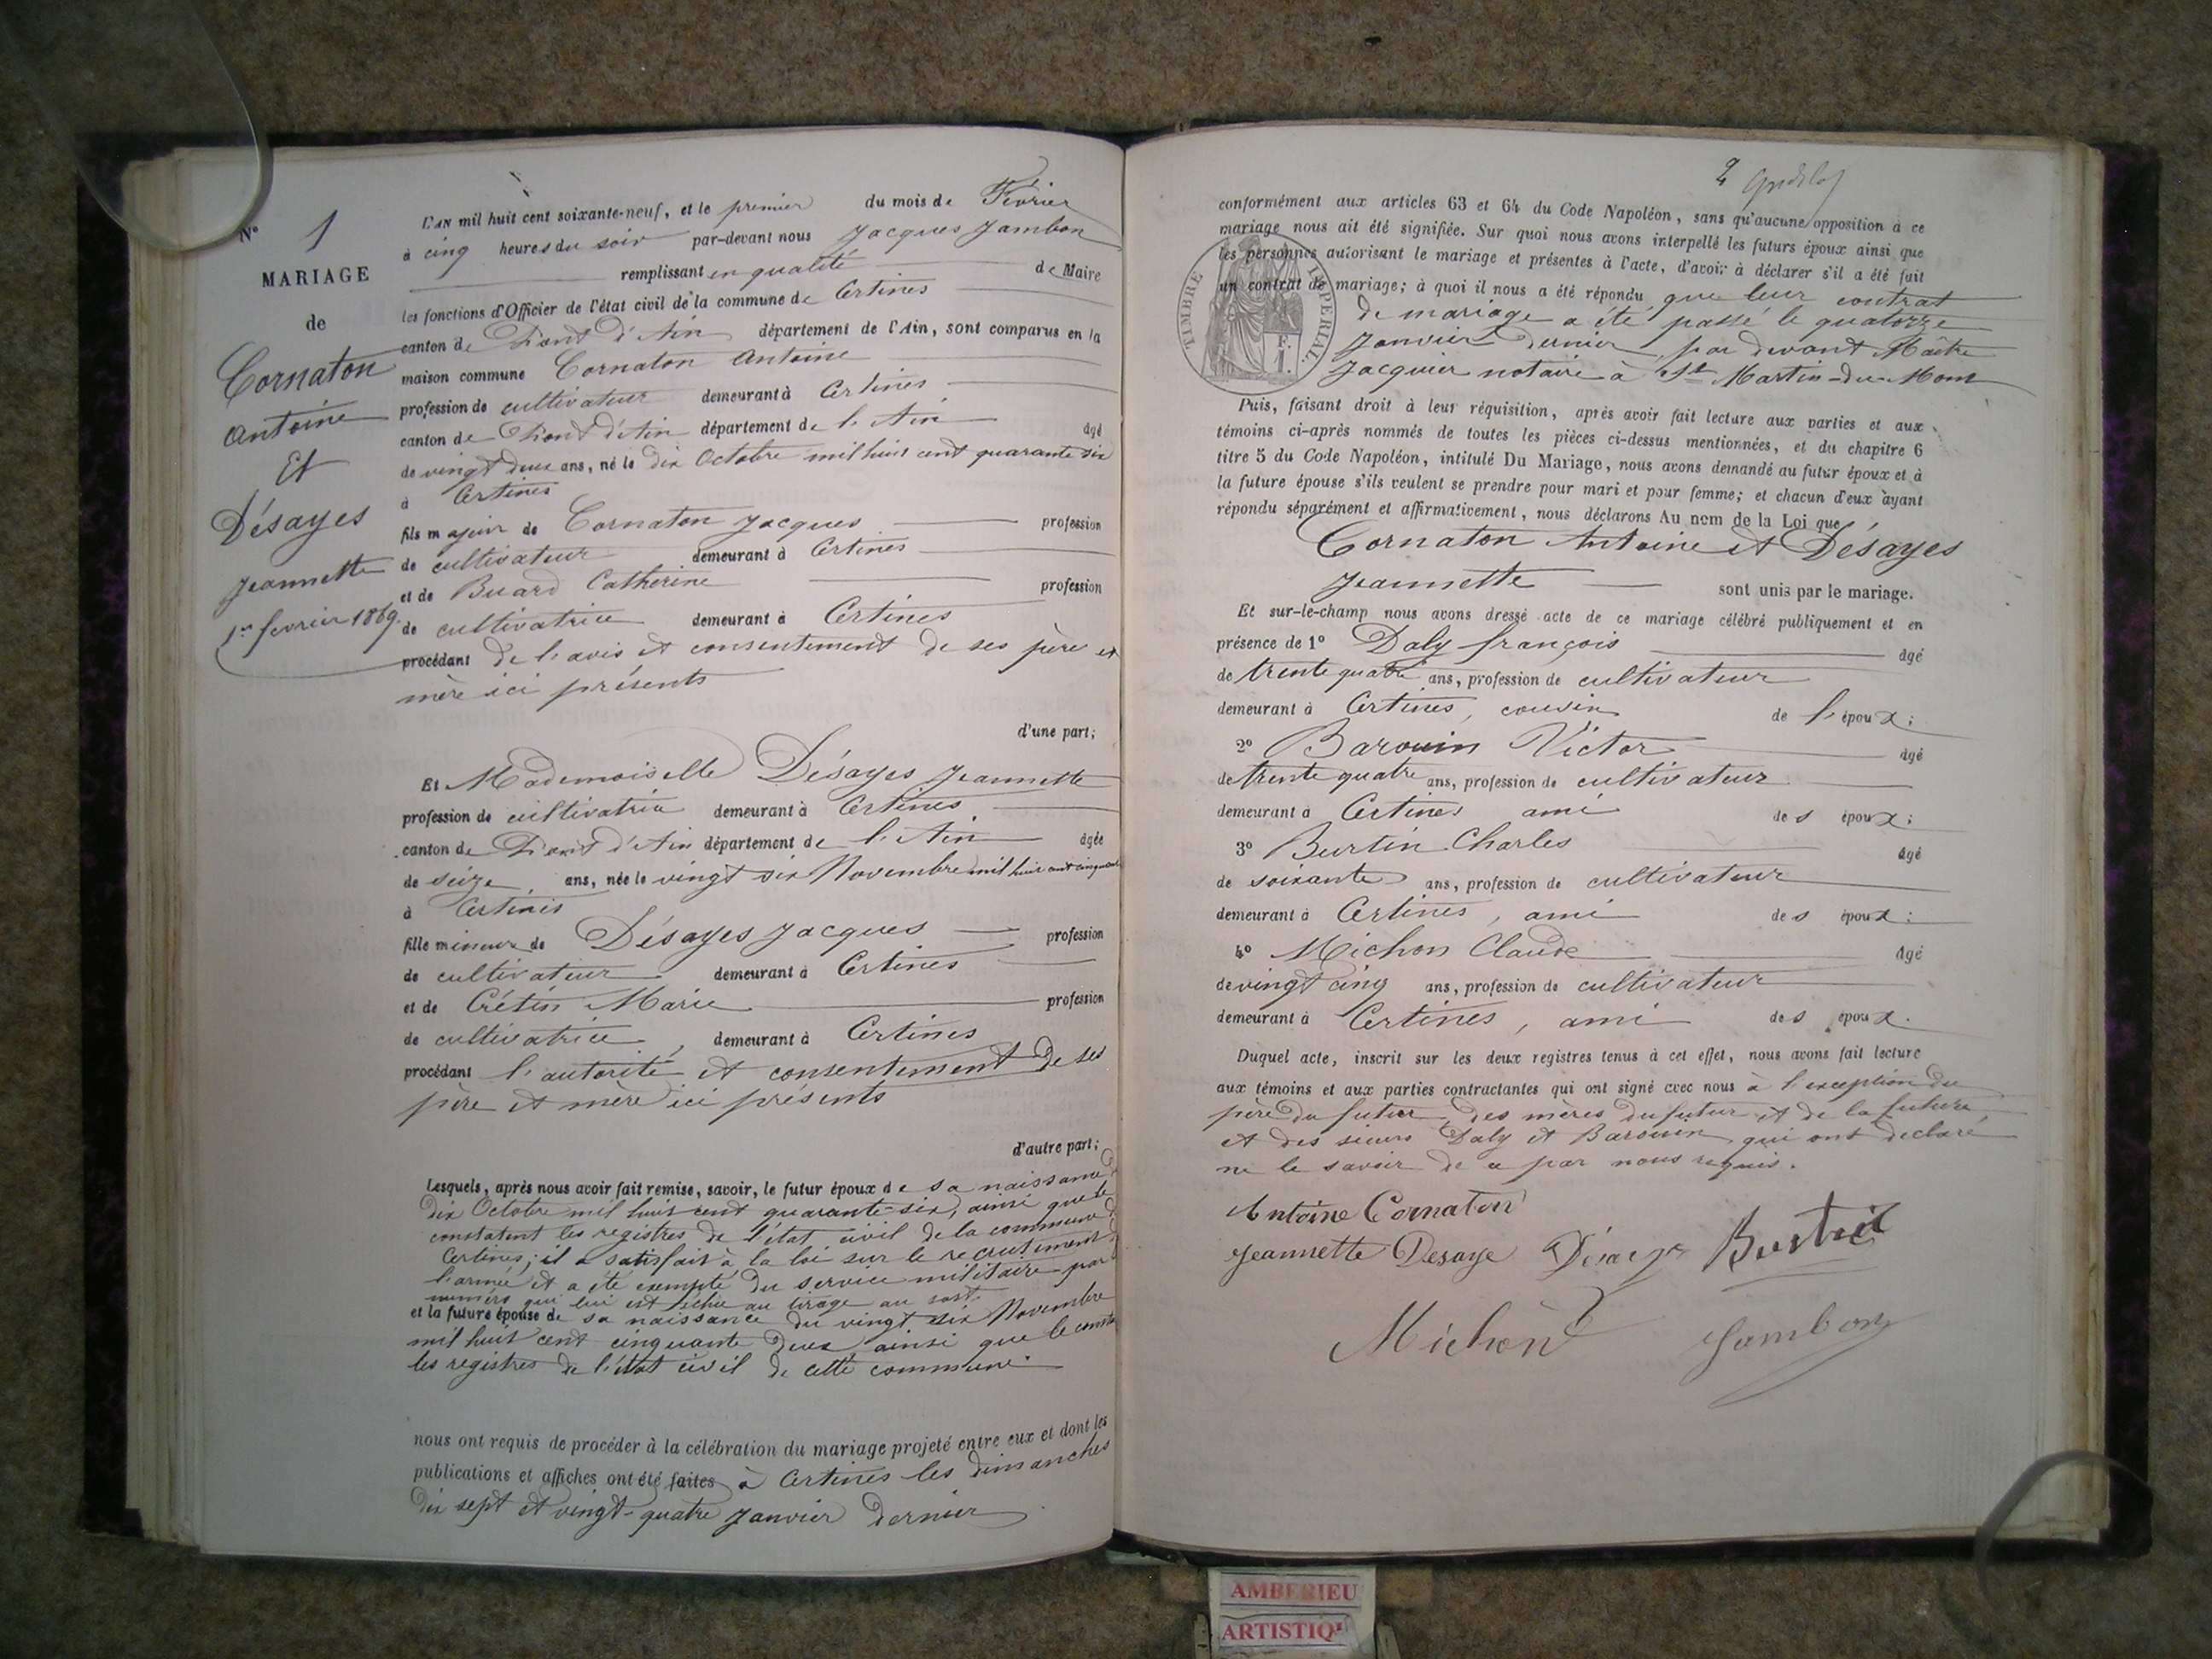 N° 1
MARIAGE
de
Cornaton
Antoine
Et
Désayes
Jeannette
1er fevrier 1869.
L'AN mil huit cent soixante-neuf, et le premier du mois de Février
à cinq heures du soir par-devant nous Jacques Jambon
remplissant en qualité de Maire
les fonctions d'Officier de l'état civil de la commune de Certines
canton de Pont d'Ain département de l'Ain, sont comparus en la
maison commune Cornaton Antoine
profession de cultivateur demeurant à Certines
canton de Pont d'Ain département de l'Ain âgé
de vingt deux ans, né le dix Octobre mil huit cent quarante six
à Certines
fils majeur de Cornaton Jacques profession
de cultivateur demeurant à Certines
et de Buard Catherine profession
de cultivatrice demeurant à Certines
procédant de l'avis et consentement de ses père et
mère ici présents
d'une part;
Et Mademoiselle Désayes Jeannette
profession de cultivatrice demeurant à Certines
canton de Pont d'Ain département de l'Ain âgée
de seize ans, née le vingt six Novembre mil huit cent cinquante
à Certines
fille mineure de Désayes Jacques profession
de cultivateur demeurant à Certines
et de Crétin Marie profession
de cultivatrice, demeurant à Certines
procédant l'autorité et consentement de ses
père et mère ici présents
d'autre part;
Lesquels, après nous avoir fait remise, savoir, le futur époux de sa naissance
dix Octobre mil huit cent quarante-six, ainsi que le
constatent les registres de l'état civil de la commune
Certines; il a satisfait à la loi sur le recrutement
l'armée et a été exempté du service militaire par
numéro qui lui est échu au tirage au sort.
et la future épouse de sa naissance du vingt six Novembre
mil huit cent cinquante deux ainsi que le const
les registres de l'état civil de cette commune.
nous ont requis de procéder à la célébration du mariage projeté entre eux et dont les
publications et affiches ont été faites à Certines les dimanches
dix sept et vingt-quatre Janvier dernier
2
conformément aux articles 63 et 64 du Code Napoléon, sans qu'aucune opposition à ce
mariage nous ait été signifiée. Sur quoi nous avons interpellé les futurs époux ainsi que
les personnes autorisant le mariage et présentes à l'acte, d'avoir à déclarer s'il a été fait
un contrat de mariage; à quoi il nous a été répondu que leur contrat
de mariage a été passé le quatorze
Janvier dernier, par devant Maître
Jacquier notaire à St Martin-du-Mont
TIMBRE IMPÉRIAL.
F.
1.
Puis, faisant droit à leur réquisition, après avoir fait lecture aux parties et aux
témoins ci-après nommés de toutes les pièces ci-dessus mentionnées, et du chapitre 6
titre 5 du Code Napoléon, intitulé Du Mariage, nous avons demandé au futur époux et à
la future épouse s'ils veulent se prendre pour mari et pour femme; et chacun d'eux ayant
répondu séparément et affirmativement, nous déclarons Au nom de la Loi que
Cornaton Antoine et Désayes
Jeannette sont unis par le mariage.
Et sur-le-champ nous avons dressé acte de ce mariage célébré publiquement et en
présence de 1° Daly françois âgé
de trente quatre ans, profession de cultivateur
demeurant à Certines, cousin de l'époux;
2° Barouin Victor âgé
de trente quatre ans, profession de cultivateur
demeurant à Certines ami des époux;
3° Burtin Charles âgé
de soixante ans, profession de cultivateur
demeurant à Certines, ami des époux;
4° Michon Claude âgé
de vingt cinq ans, profession de cultivateur
demeurant à Certines, ami des époux.
Duquel acte, inscrit sur les deux registres tenus à cet effet, nous avons fait lecture
aux témoins et aux parties contractantes qui ont signé avec nous à l'exception du
père du futur, des mères du futur et de la future,
et des sieurs Daly et Barouin qui ont déclaré
ne le savoir de ce par nous requis.
Antoine Cornaton
Jeannette Desaye Désayes Burtin
Michon Jambon
AMBERIEU
ARTISTIQ